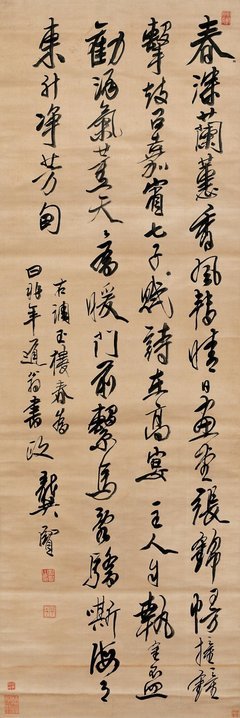 春深蘭蕙香風轉晴日畫堂張錦幔撞鐘
擊鼓召嘉賓七子賦詩在高宴主人自執金盃
勸酒氣薰天天為暖門前繫馬齊驕嘶海月
東升淨芳甸
古調玉樓春為
年道翁書政
龔賢